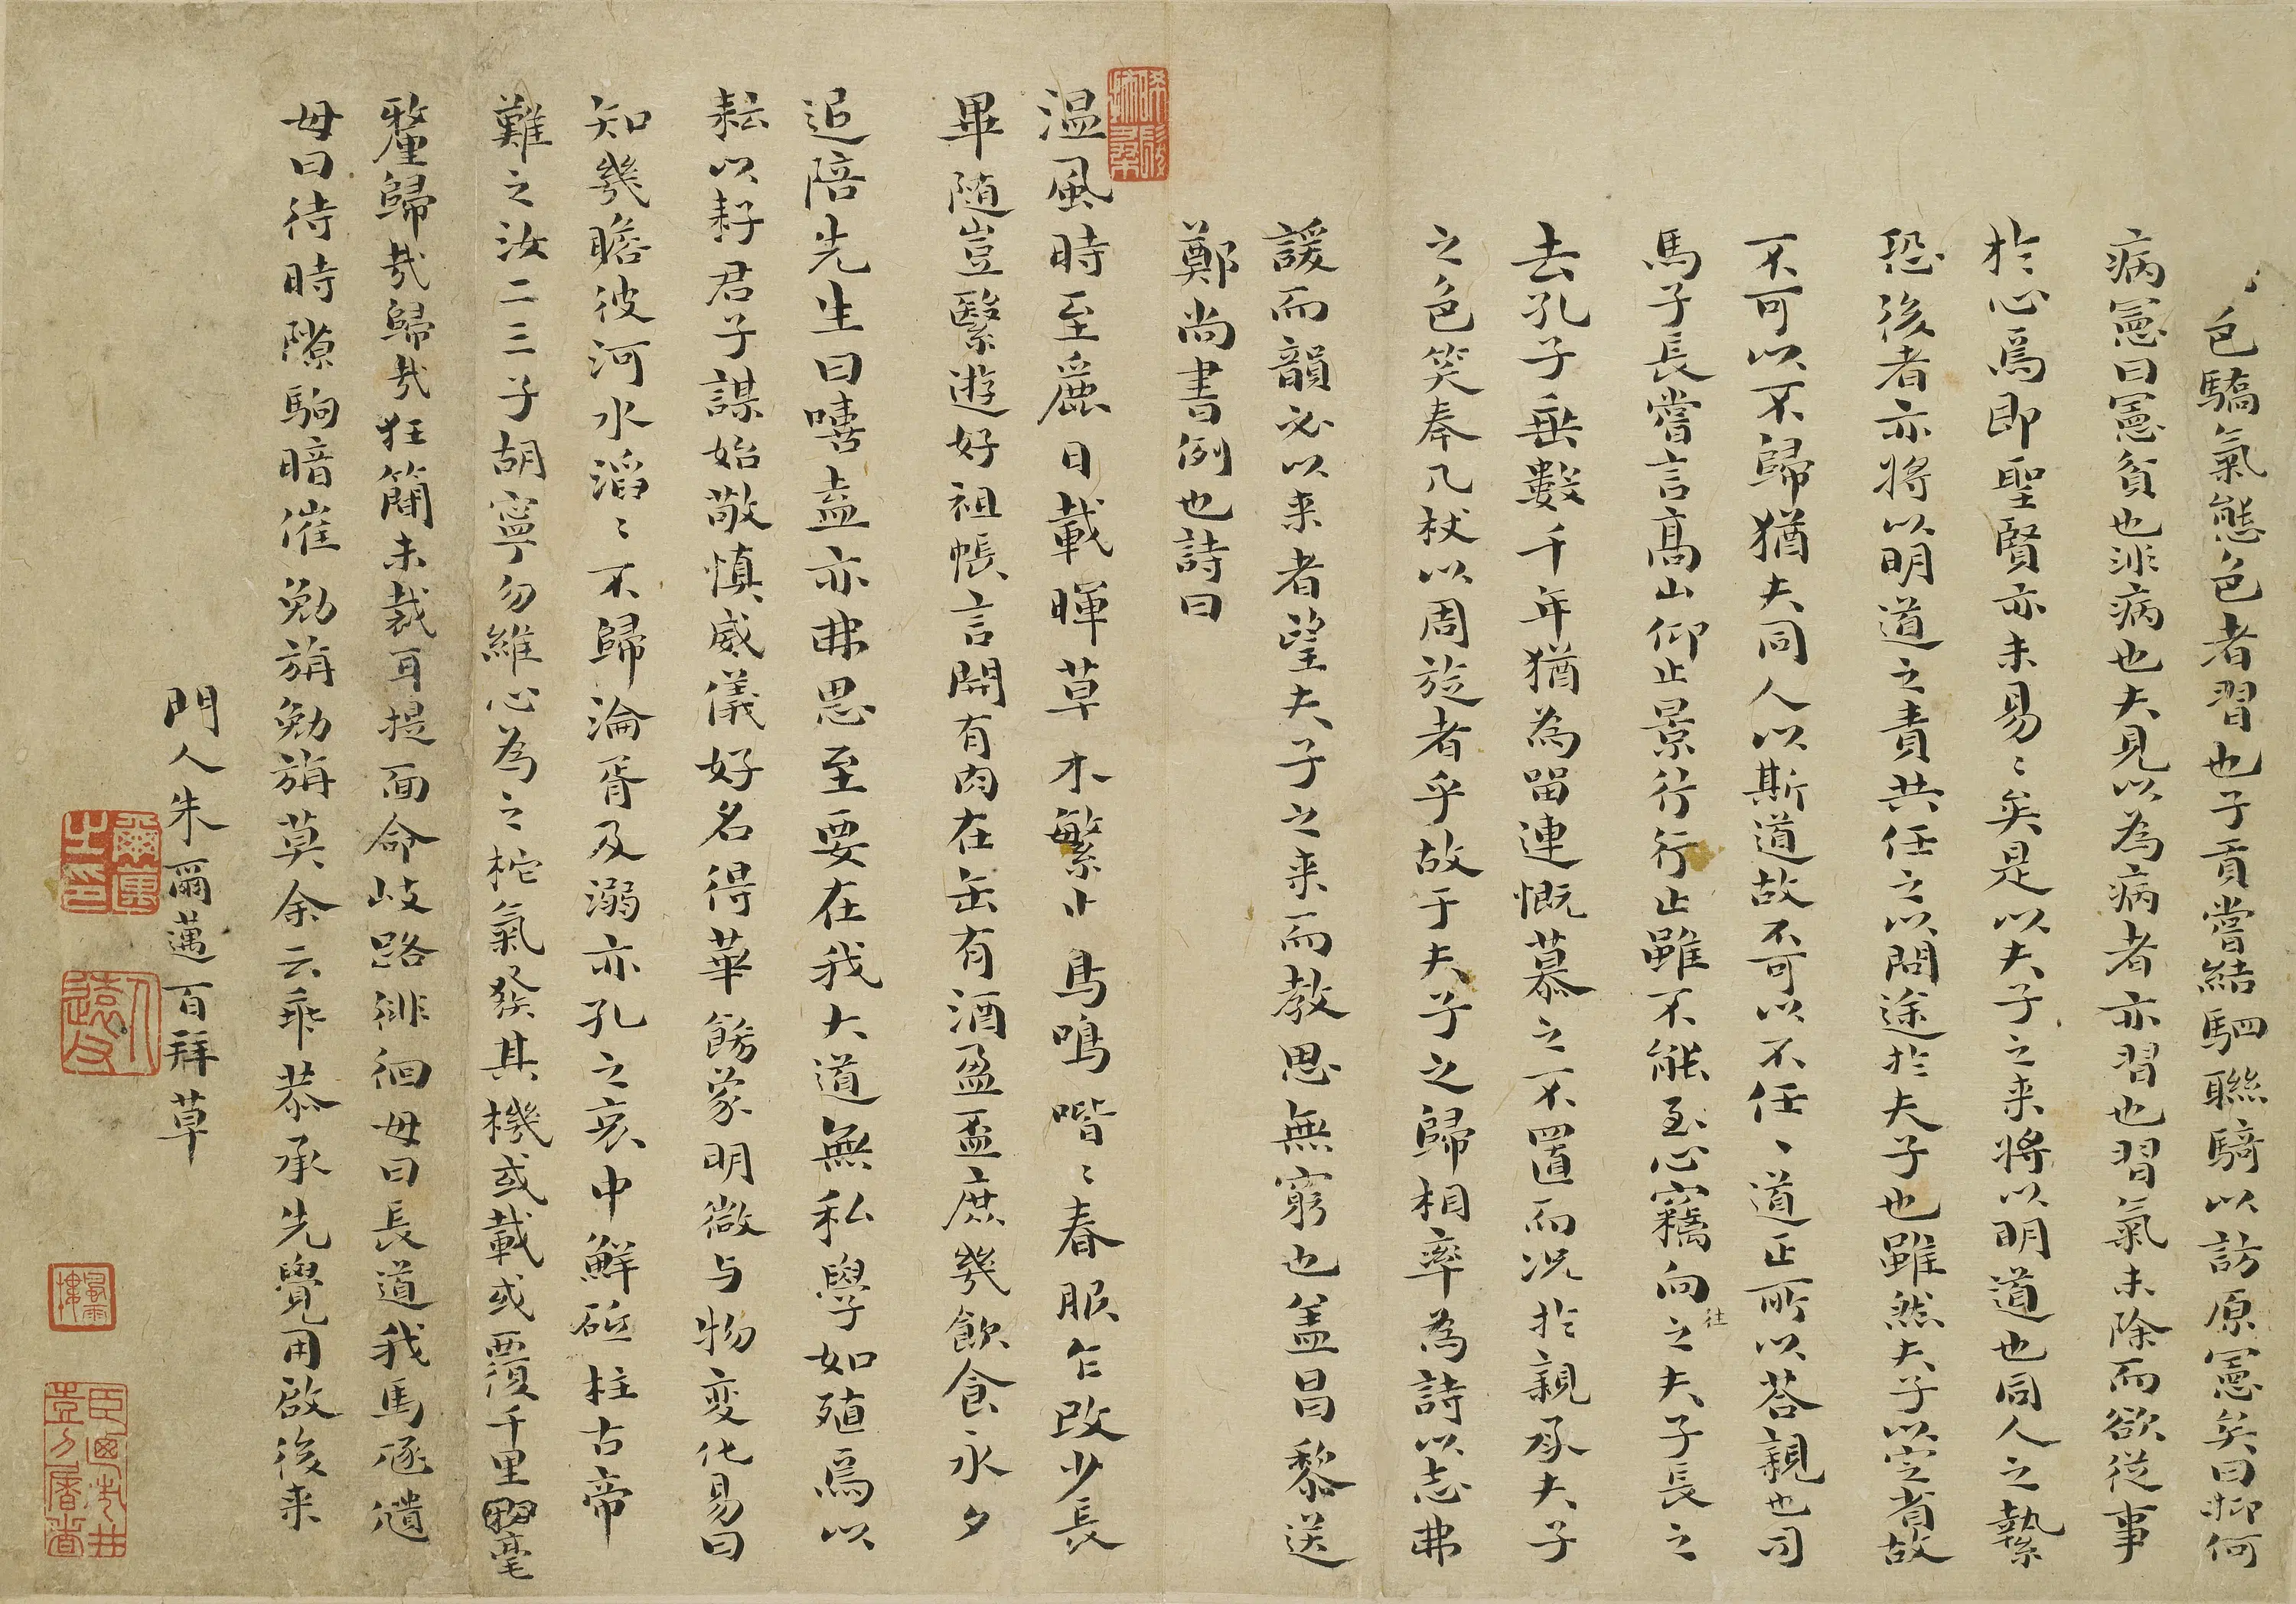 色驕氣態色者習也子貢嘗結駟聯騎以訪原憲矣曰抑何
病憲曰憲貧也非病也夫見以為病者亦習也習氣未除而欲從事
於心焉即聖賢亦未易〻矣是以夫子之来將以明道也同人之縶
恐後者亦將以明道之責共任之以問途於夫子也雖然夫子以定省故
不可以不歸猶夫同人以斯道故不可以不任、道正所以荅親也司
馬子長嘗言髙山仰止景行行止雖不能至心竊向徃之夫子長之
去孔子垂數千年猶為留連慨慕之不置而况於親承夫子
之色笑奉几杖以周旋者乎故于夫子之歸相率為詩以志弗
諼而韻必以来者望夫子之来而教思無窮也盖昌黎送
鄭尚書例也詩曰
温風時至麗日載暉草木繁止鳥鳴喈〻春服乍改少長
畢随豈繄遊好祖帳言開有肉在缶有酒盈盃庶幾飲食永夕
追陪先生曰嘻盍亦弗思至要在我大道無私學如殖焉以
耘以耔君子謀始敬慎威儀好名得華餙蒙明微与物変化易曰
知幾瞻彼河水滔〻不歸淪胥及溺亦孔之哀中鮮砥柱古帝
難之汝二三子胡寧勿維心為之柁氣發其機或載或覆千里毫
釐歸哉歸哉狂簡未裁耳提面命歧路徘徊毋曰長道我馬逐𨙝
毋曰待時隙駒暗催勉旃勉旃莫余云乖恭承先覺用啟後来
門人朱爾邁百拜草